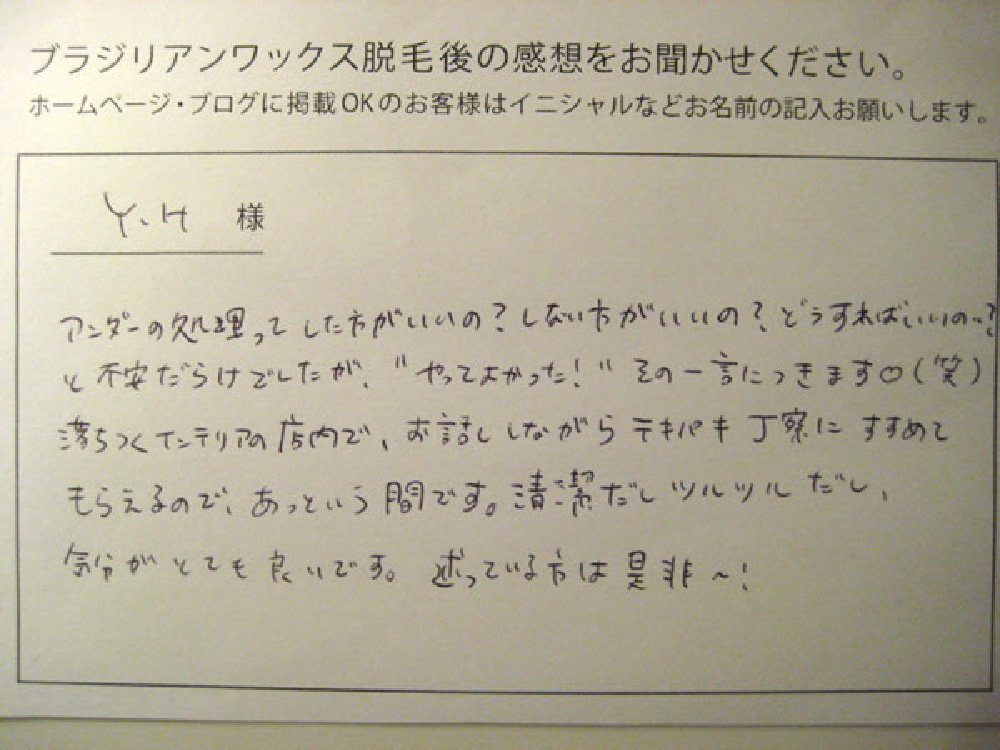 ブラジリアンワックス脱毛後の感想をお聞かせください。
ホームページ・ブログに掲載OKのお客様はイニシャルなどお名前の記入お願いします。
Y.H 様
アンダーの処理ってした方がいいの?しない方がいいの?どうすればいいの…?
と不安だらけでしたが、"やってよかった!"その一言につきます♡(笑)
落ちつくインテリアの店内で、お話ししながらテキパキ丁寧にすすめて
もらえるので、あっという間です。清潔だしツルツルだし、
気分がとても良いです。迷っている方は是非~!